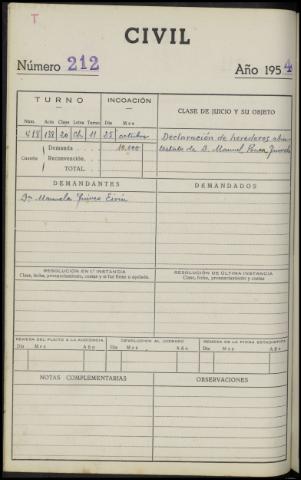 T
CIVIL
Número 212 Año 1954
TURNO INCOACIÓN CLASE DE JUICIO Y SU OBJETO
Núm. Acto Clase Letra Turno Día Mes
418 138 20 Ch 11 25 octubre Declaración de herederos abin-
Demanda 10.000 testato de D. Manuel
Cuantía Reconvención.
TOTAL
DEMANDANTES DEMANDADOS
Dª Manuela
RESOLUCIÓN EN 1.ª INSTANCIA RESOLUCIÓN DE ÚLTIMA INSTANCIA
Clase, fecha, pronunciamiento, costas y si fué firme o apelada. Clase, fecha, pronunciamiento y costas
REMESA DEL PLEITO A LA AUDIENCIA DEVOLUCIÓN AL JUZGADO REMESA DE LA FICHA ESTADÍSTICA
Día Mes Año Día Mes Año Día Mes Año
NOTAS COMPLEMENTARIAS OBSERVACIONES